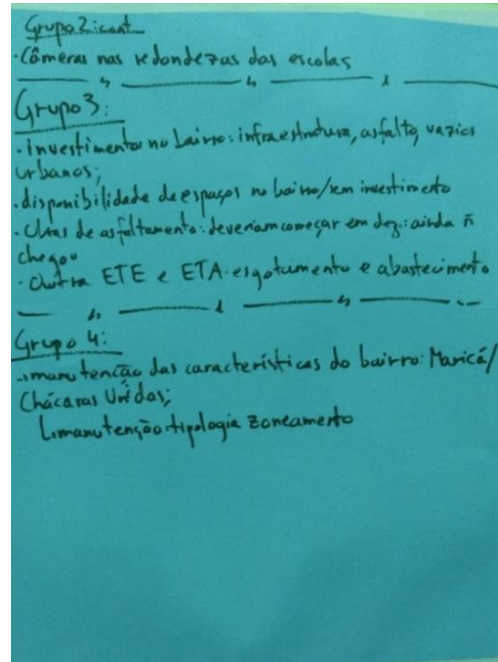 Grupo 2: cont
· Câmeras nas redondezas das escolas
Grupo 3:
· investimento no bairro: infraestrutura, asfalto, vazios
urbanos;
· disponibilidade de espaços no bairro/sem investimento
· Obras de asfaltamento: deveriam começar em dez.: ainda ñ
chegou
· Outra ETE e ETA: esgotamento e abastecimento
Grupo 4:
· manutenção das características do bairro: Maricá/
Chácaras Unidas;
↳ manutenção tipologia zoneamento